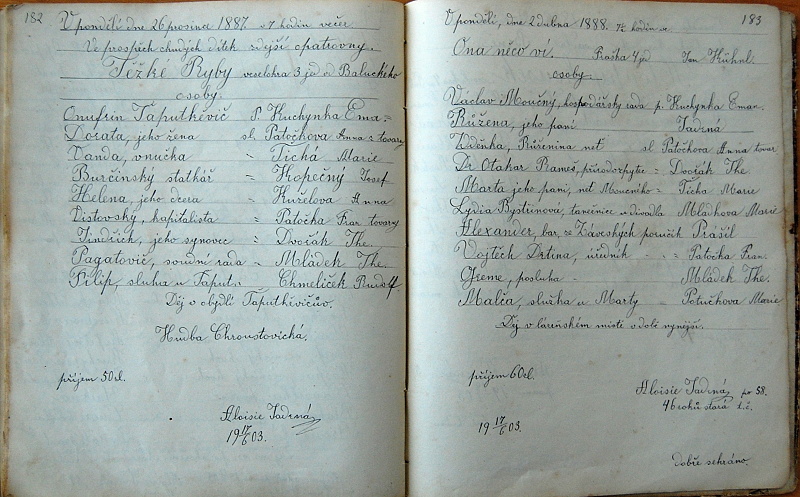 182
V pondělí dne 26 prosince 1887 v 7 hodin večer
Ve prospěch chudých dítek zdejší opatrovny.
Těžké Ryby veselohra 3 jed od Baluckého
osoby.
Onufrin Taputkěvič P. Kuchynka Ema=
Dorata, jeho žena sl. Patočkova Anna z tovary
Vanda, vnučka = Tichá Marie
Burčinský statkář = Kopečný Josef
Helena, jeho dcera = Kuřelova Anna
Vistovský, kapitalista = Patočka Fran. tovarny
Jindřich, jeho synovec = Dvořák The.
Pagatovič, soudní rada = Mládek The.
Filip, sluha u Taput. = Chmelíček Rudolf
Děj v obydlí Taputkěvičův.
Hudba Chroustovická.
příjem 50 zl.
Aloisie Jadrná
19 17/6 03.
183
V pondělí, dne 2 dubna 1888. 7½ hodin ve.
Ona něco ví. Fraška 4 jed Jan Kühnl.
osoby
Václav Moučný, hospodářský rada p. Kuchynka Eman.
Růžena, jeho paní Jadrná
Zděnka, Růženina neť sl Patočkova Anna tovar
Dr Otakar Prameš, přírodozpytec = Dvořák The.
Marta jeho paní, neť Moučného = Tichá Marie
Lydia Bystřinová, tanečnice u divadla Mládkova Marie
Alexander, bar. z Záveských poručík Prášil
Vojtěch Drtina, úředník = Patočka Fran.
Greme, posluha - Mládek The.
Malča, služka u Marty = Potučkova Marie
Děj v lázeňském místě v době nynější.
příjem 60 zl.
Aloisie Jadrná po 58.
46 roků stará t.č.
19 17/6 03.
dobře sehráno.